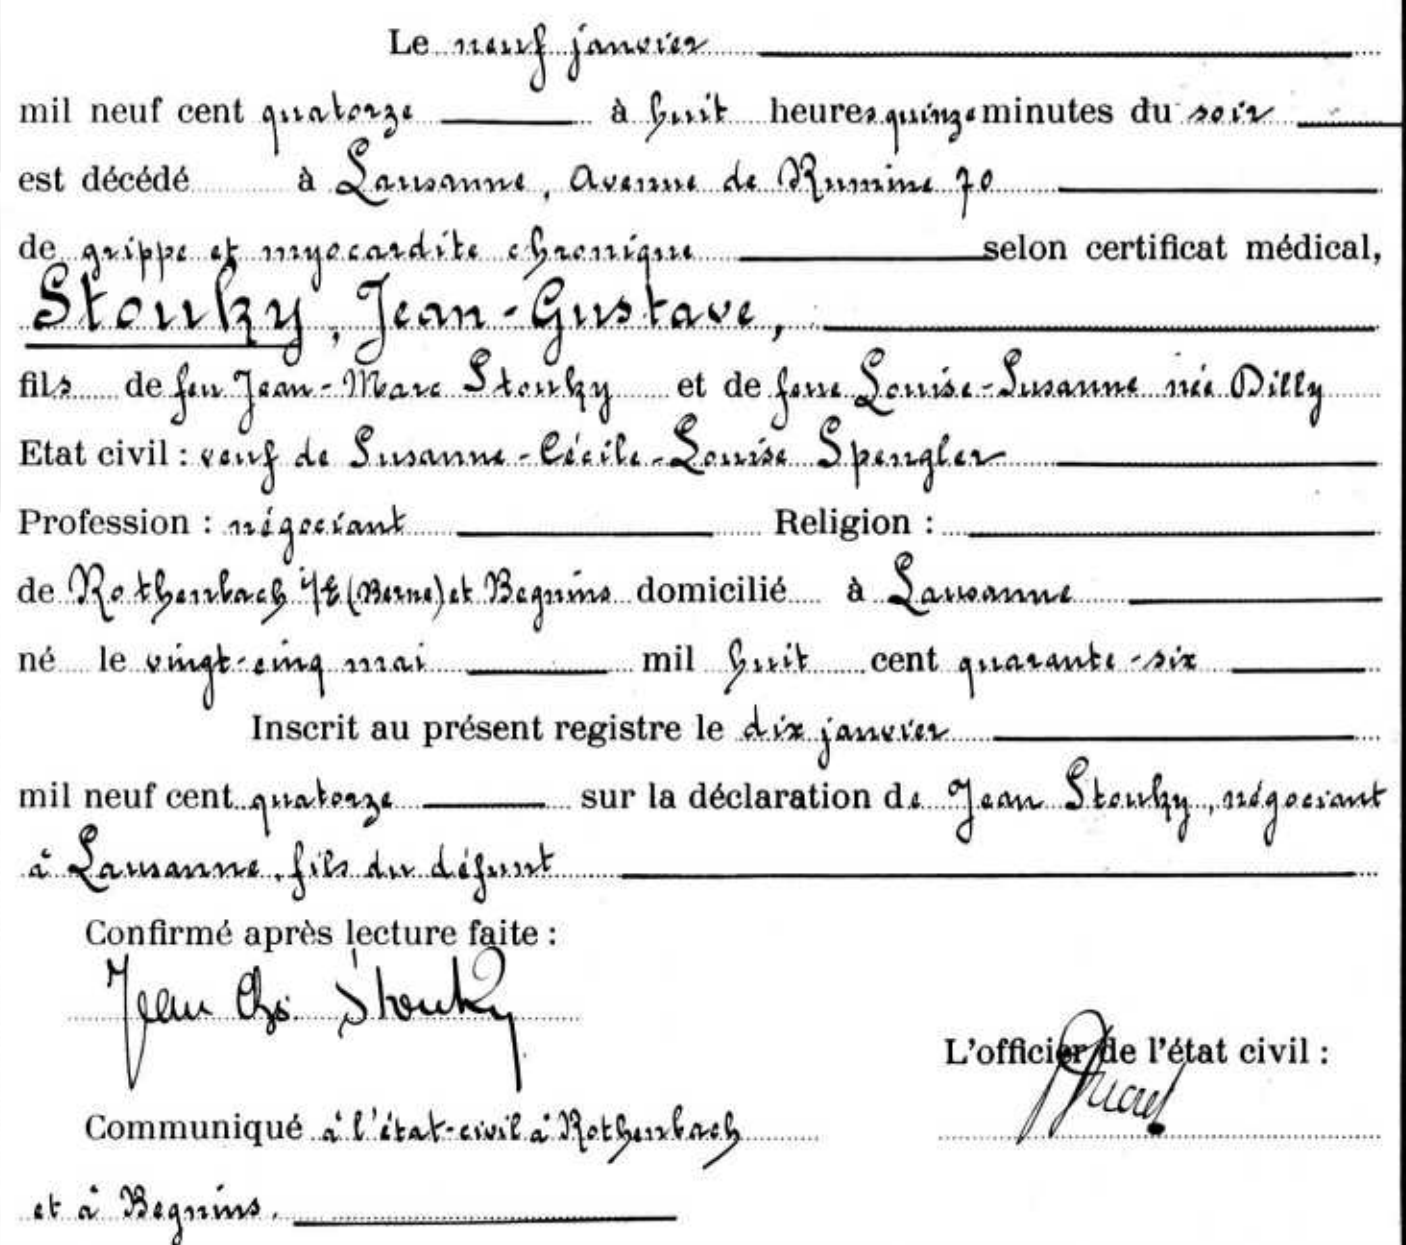 Le neuf janvier
mil neuf cent quatorze à huit heures quinze minutes du soir
est décédé à Lausanne, Avenue de Rumine 70
de grippe et myocardite chronique selon certificat médical,
Stouky, Jean-Gustave,
fils de feu Jean-Marc Stouky et de feue Louise-Susanne née Dilly
Etat civil : veuf de Susanne-Cécile-Louise Spengler
Profession : négociant Religion :
de Rothenbach i/E (Berne) et Begnins domicilié à Lausanne
né le vingt-cinq mai mil huit cent quarante-six
Inscrit au présent registre le dix janvier
mil neuf cent quatorze sur la déclaration de Jean Stouky, négociant
à Lausanne, fils du défunt
Confirmé après lecture faite :
Jean Chs. Stouky
L'officier de l'état civil :
Communiqué à l'état-civil à Rothenbach
et à Begnins.